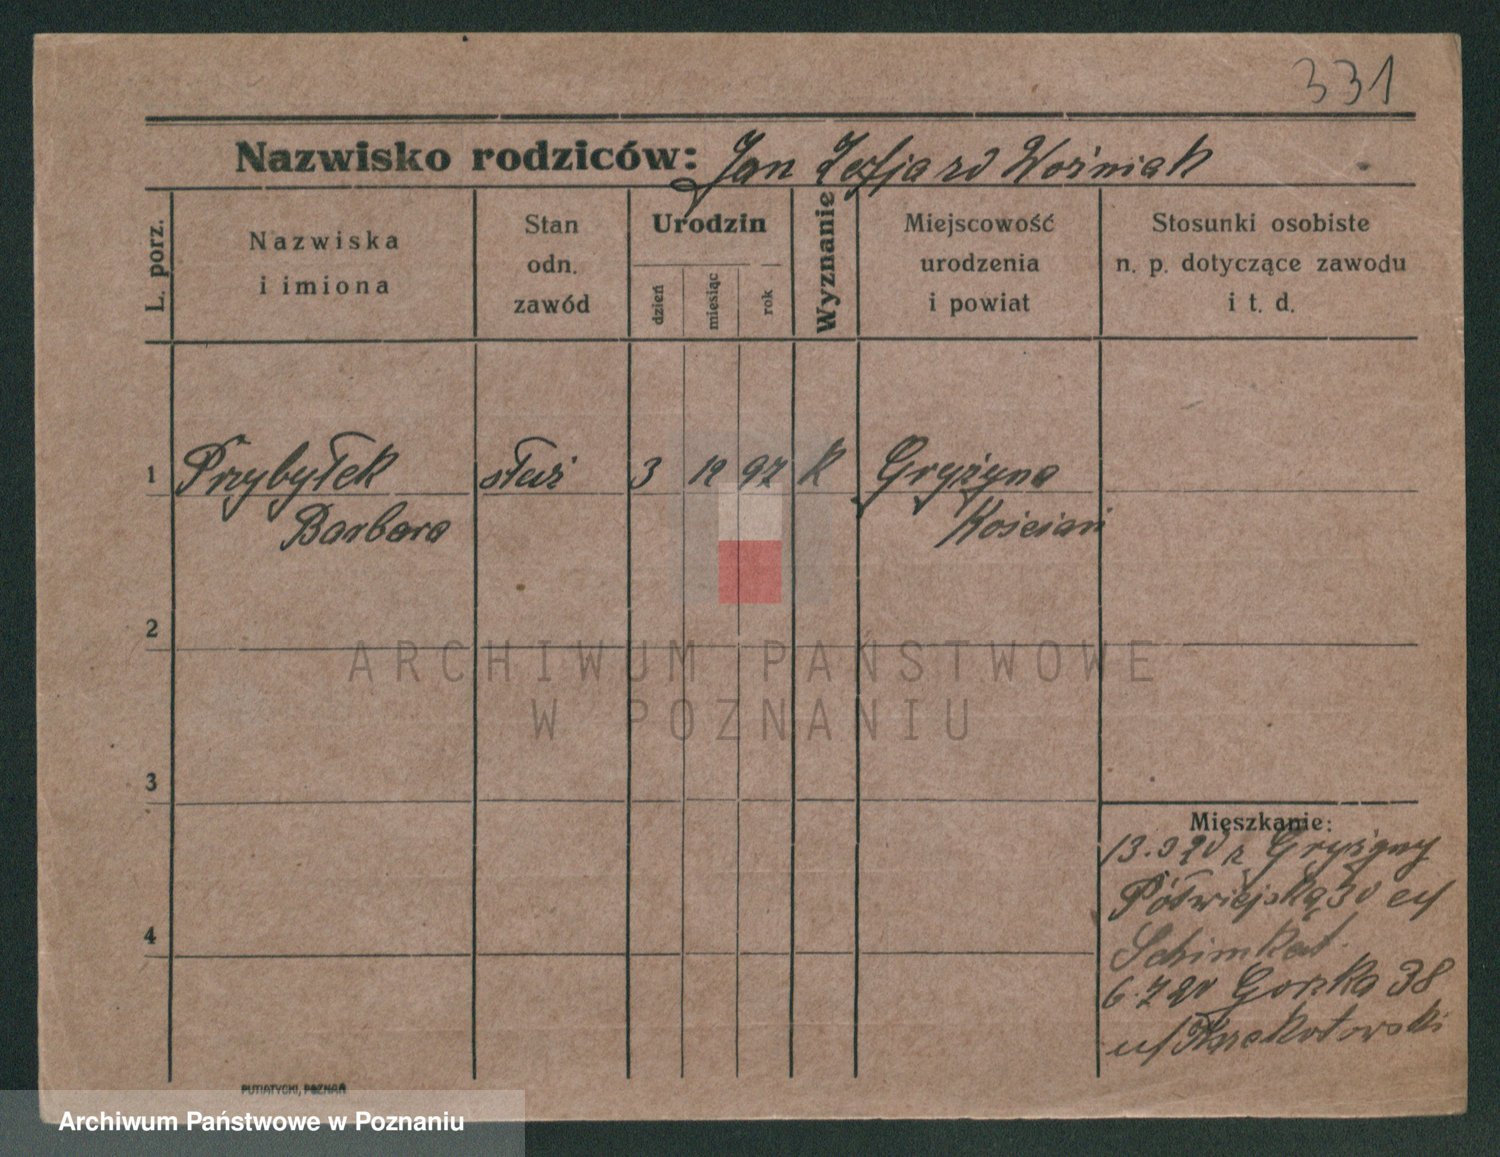 331
Nazwisko rodziców: Jan Woźniak
L. porz.
Nazwiska
i imiona
Stan
odn.
zawód
Urodzin
dzień
miesiąc
rok
Wyznanie
Miejscowość
urodzenia
i powiat
Stosunki osobiste
n. p. dotyczące zawodu
i t. d.
1 Przybyłek służ 3 12 97 K Gryżyna
Barbara Kościań
2
ARCHIWUM PAŃSTWOWE
W POZNANIU
3
Mieszkanie:
13.3 20 z Gryżyny
Półwiejska 30
4
6.7 20 Gorzka 38
PUTIATYCKI, POZNAŃ
Archiwum Państwowe w Poznaniu